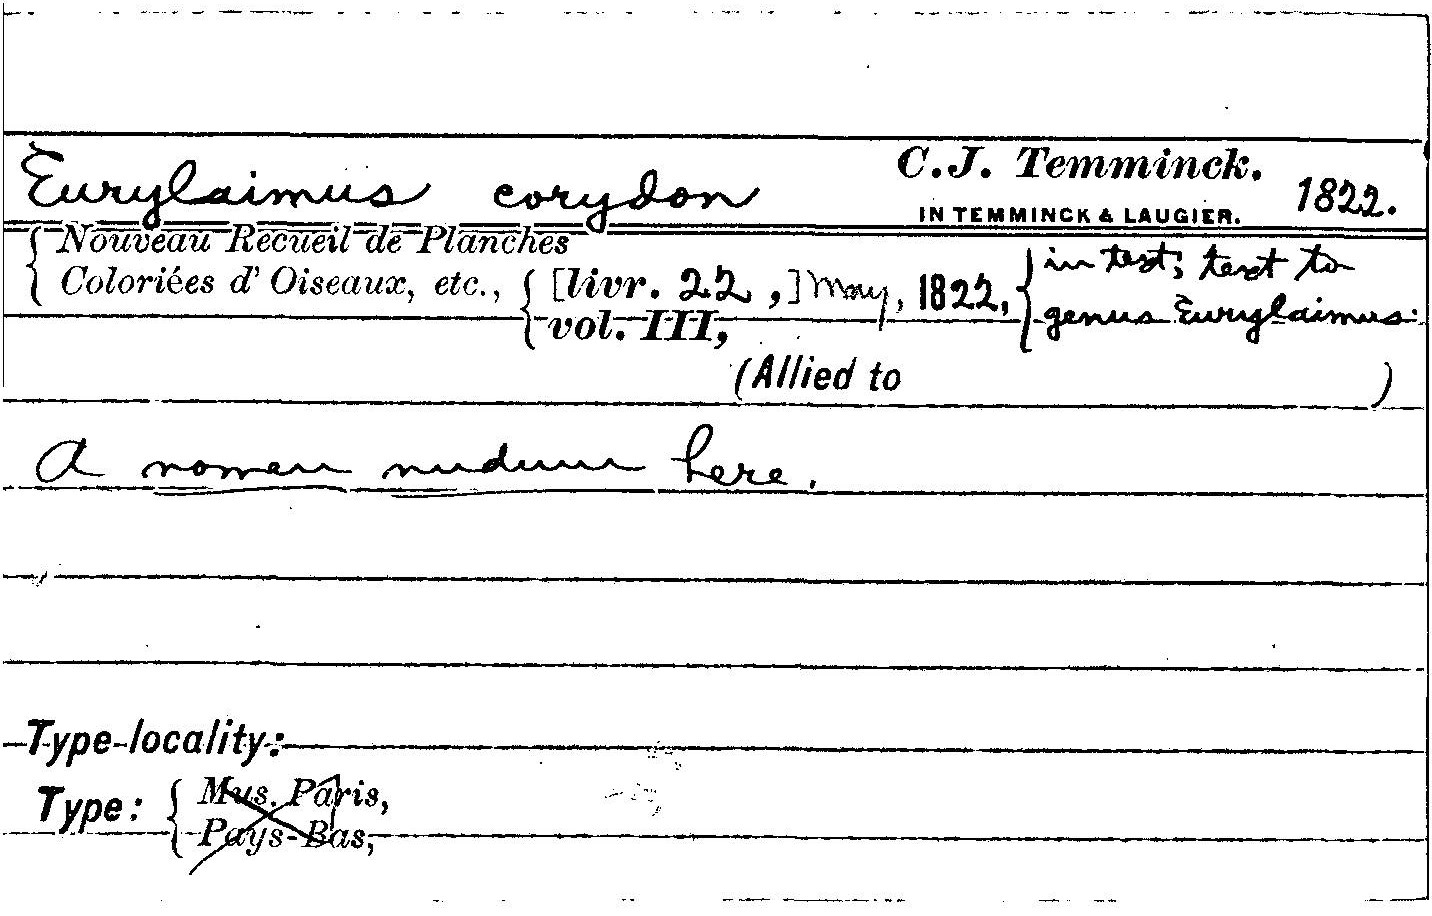 Eurylaimus corydon C.J. Temminck. 1822.
IN TEMMINCK & LAUGIER.
Nouveau Recueil de Planches
Coloriées d' Oiseaux, etc., [livr. 22,] May, 1822, in text; text to
vol. III, genus Eurylaimus.
(Allied to )
A nomen nudum here.
Type-locality:
Type: Mus. Paris,
Pays-Bas,